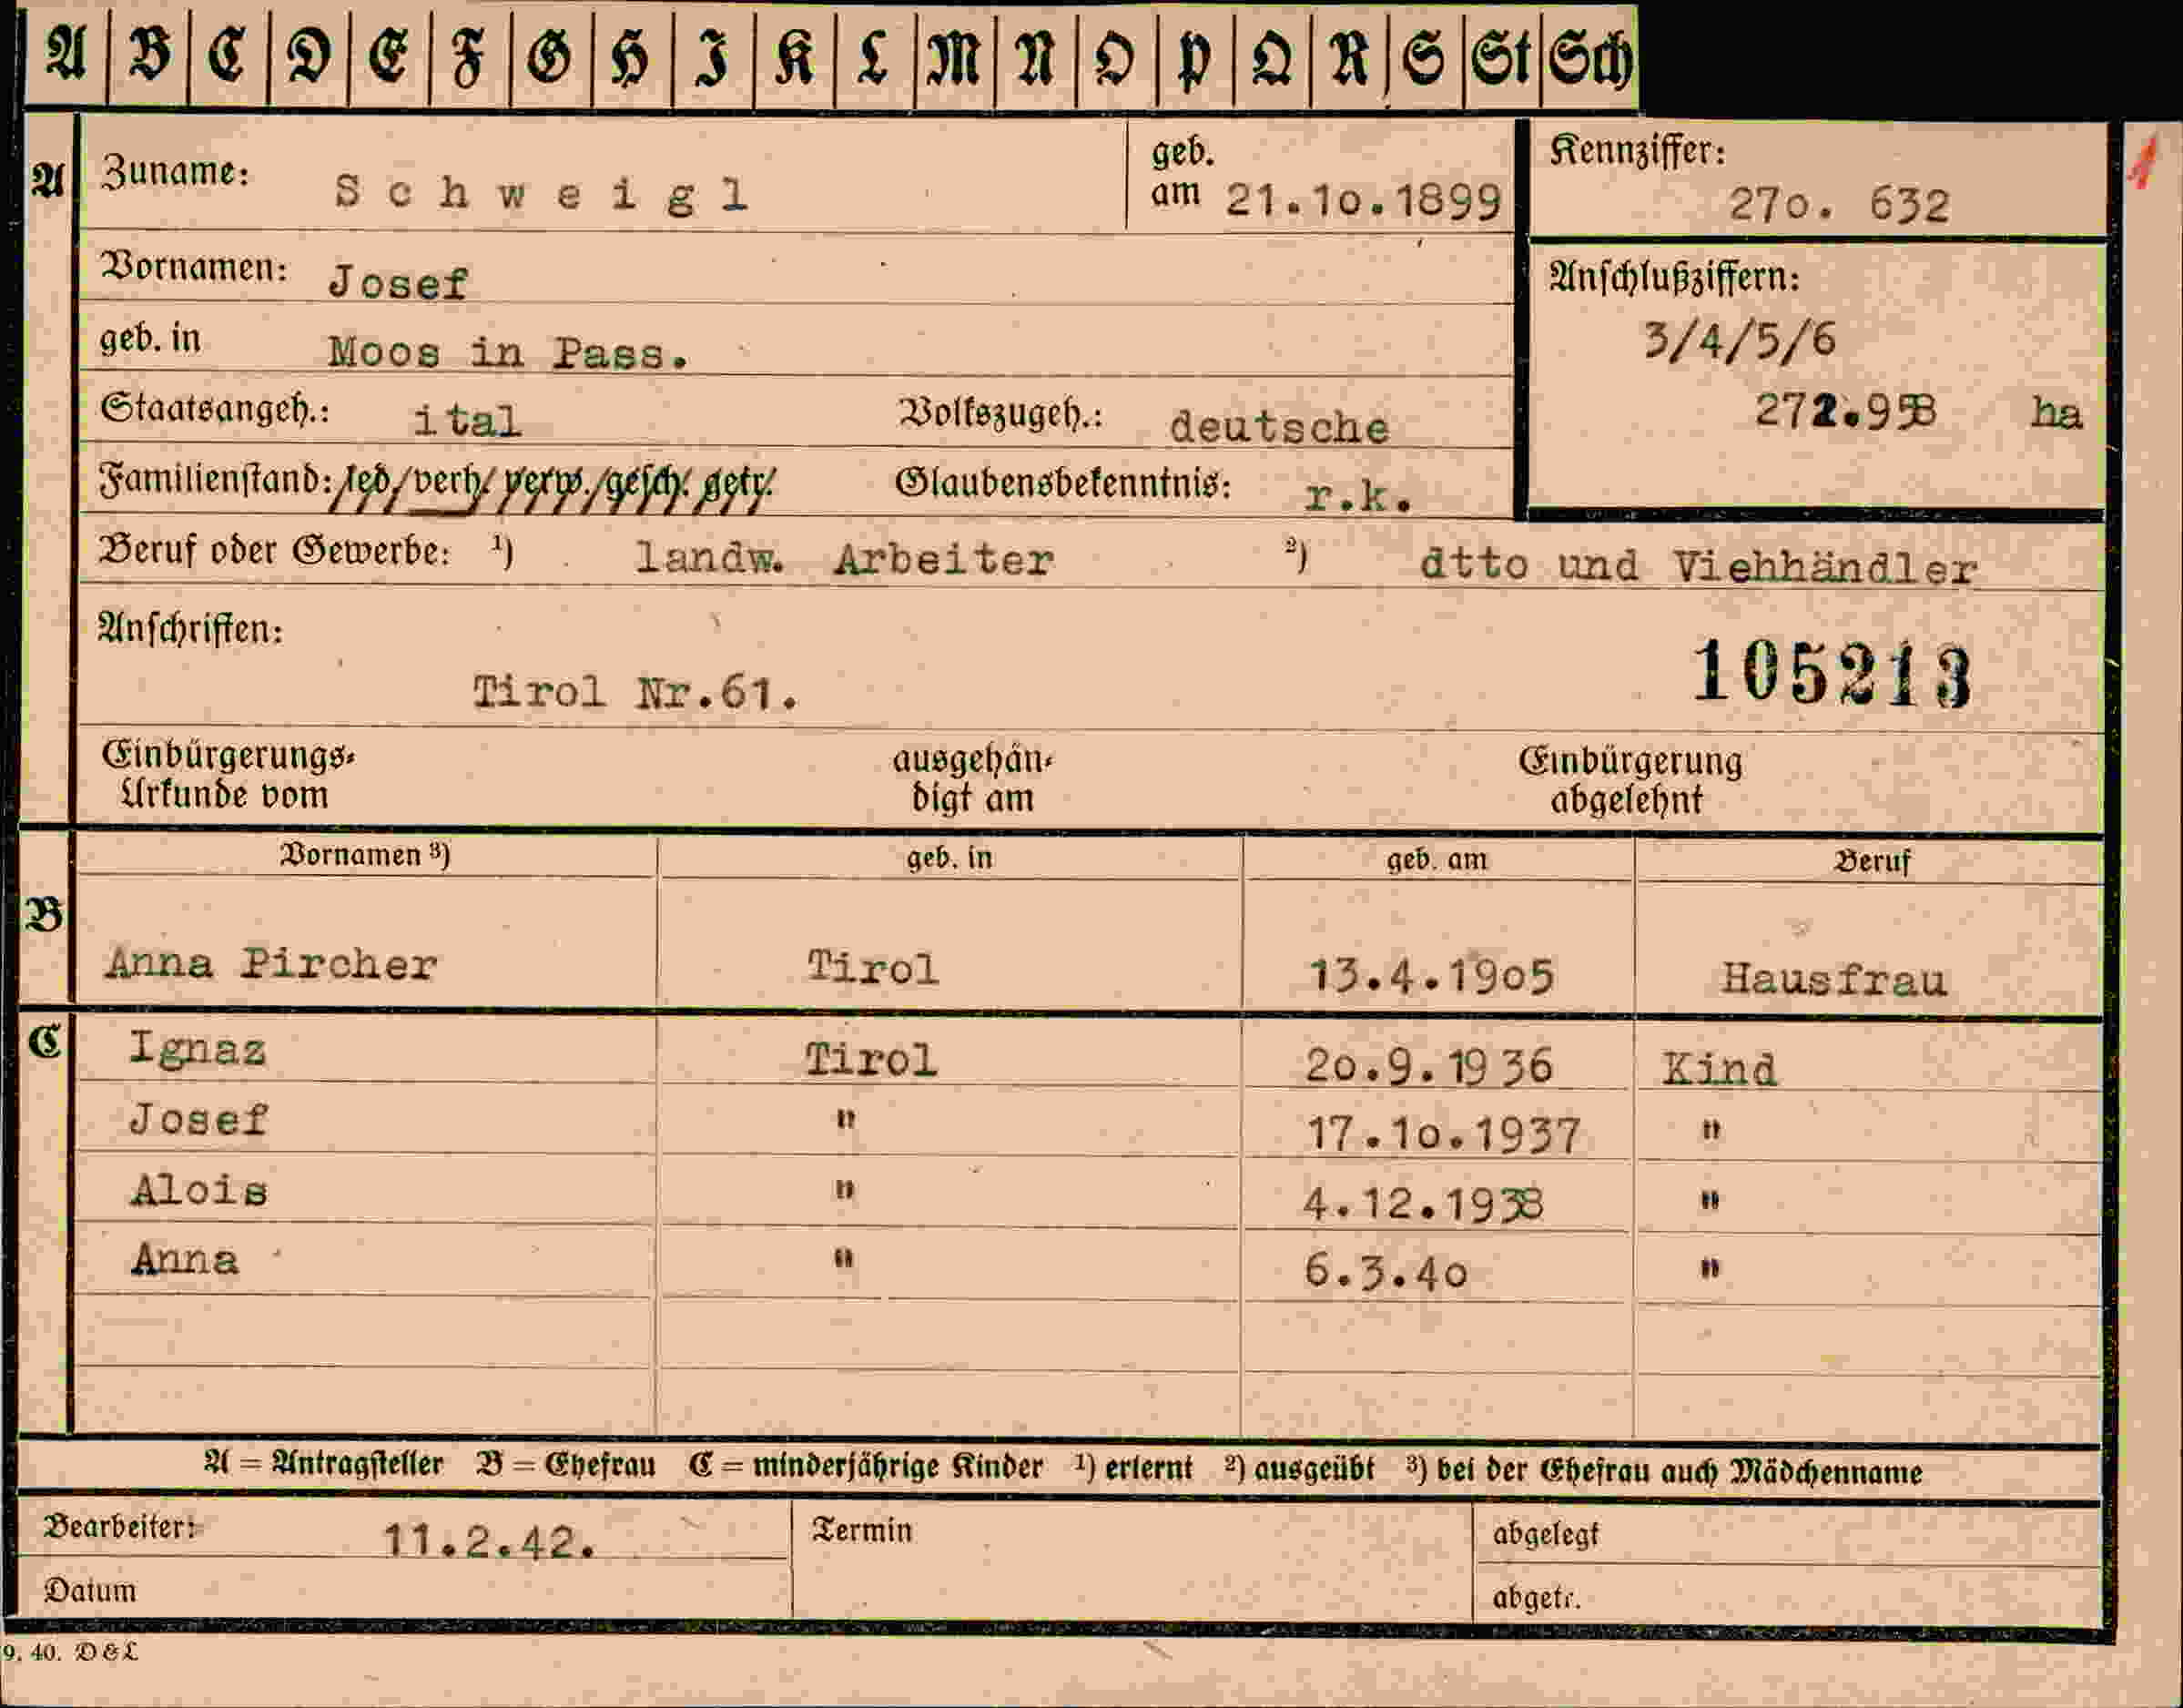 A B C D E F G H I K L M N O P Q R S St Sch
A Zuname: Schweigl geb. am 21.10.1899 Kennziffer: 270. 632
Vornamen: Josef Anschlußziffern:
geb. in Moos in Pass. 3/4/5/6
Staatsangeh.: ital Volkszugeh.: deutsche 272.958 ha
Familienstand: led/verh/verw./gesch. getr. Glaubensbekenntnis: r.k.
Beruf oder Gewerbe: ¹) landw. Arbeiter ²) dtto und Viehhändler
Anschriften:
Tirol Nr.61. 105213
Einbürgerungs- ausgehän- Einbürgerung
Urkunde vom digt am abgelehnt
Vornamen ³) geb. in geb. am Beruf
B
Anna Pircher Tirol 13.4.1905 Hausfrau
C Ignaz Tirol 20.9.1936 Kind
Josef " 17.10.1937 "
Alois " 4.12.1938 "
Anna " 6.3.40 "
A = Antragsteller B = Ehefrau C = minderjährige Kinder ¹) erlernt ²) ausgeübt ³) bei der Ehefrau auch Mädchenname
Bearbeiter: 11.2.42. Termin abgelegt
Datum abgetr.
9. 40. D & L